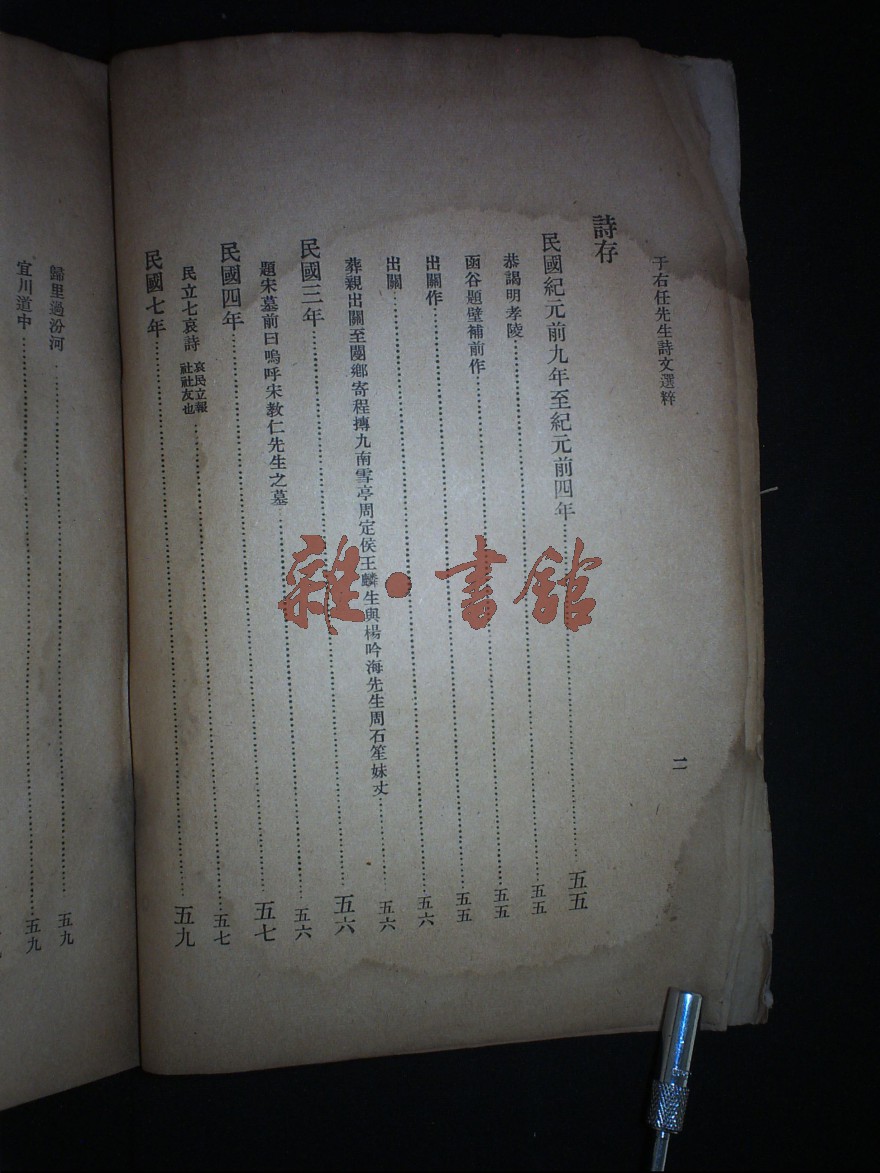 于右任先生詩文選粹 二
詩存
民國紀元前九年至紀元前四年……五五
恭謁明孝陵……五五
函谷題壁補前作……五五
出關作……五五
出關……五六
葬親出關至閿鄉寄程摶九南雪亭周定侯王麟生與楊吟海先生周石笙妹丈……五六
民國三年……五六
題宋墓前曰嗚呼宋教仁先生之墓……五六
民國四年……五七
民立七哀詩 哀民立報社社友也……五七
民國七年……五九
歸里過汾河……五九
宜川道中……五九
雜·書館